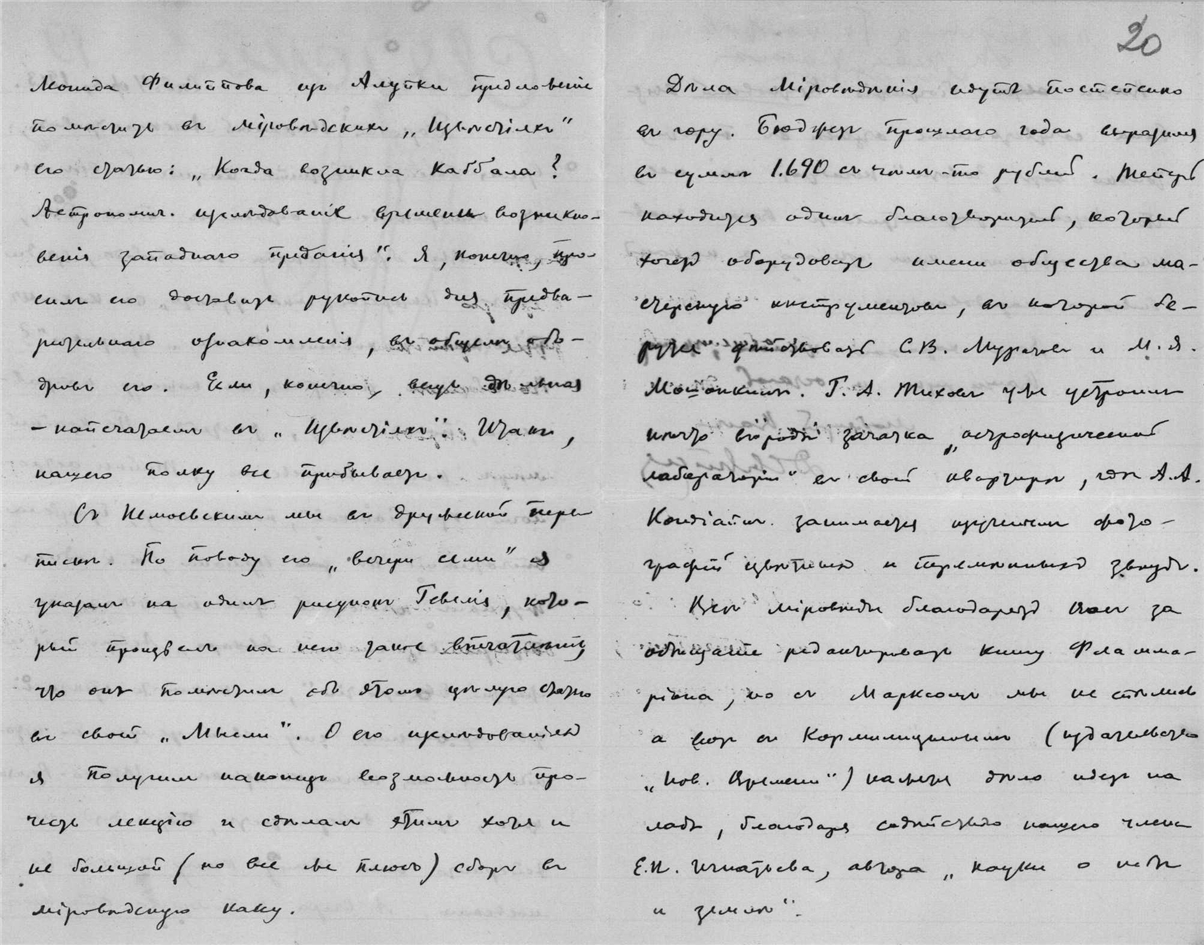 Леонида Филиппова изъ Алупки предложеніе
помѣстить въ міровѣдскихъ „Извѣстіяхъ"
его статью: „Когда возникла Каббала?
Астрономич. изслѣдованіе времени возникно-
венія западнаго преданія". Я, конечно, про-
силъ его доставить рукопись для предва-
рительнаго ознакомленія, въ общемъ обо-
дривъ его. Если, конечно, вещь дѣльная
– напечатаемъ въ „Извѣстіяхъ". Итакъ,
нашего полку все прибываетъ.
Съ Немоевскимъ мы въ дружеской пере
пискѣ. По поводу его „вечери семи" я
указалъ на одинъ рисунокъ Гевелія, кото-
рый произвелъ на него такое впечатлѣніе,
что онъ помѣстилъ объ этомъ цѣлую статью
въ своей „Мысли". О его изслѣдованіяхъ
я получилъ наконецъ возможность про-
честь лекцію и сдѣлалъ этимъ хотя и
не большой (но все же плюсъ) сборъ въ
міровѣдскую кассу.
20
Дѣла Міровѣдѣнія идутъ постепенно
въ гору. Бюджетъ прошлаго года выразился
въ суммѣ 1.690 съ чѣмъ-то рублей. Теперь
находится одинъ благотворитель, который
хочетъ оборудовать имени общества ма-
стерскую инструментовъ, въ которой бе-
рутся дѣйствовать С.В. Муратовъ и М.Я.
Мошонкинъ. Г. А. Тиховъ уже устроилъ
нѣчто вродѣ зачатка „астрофизической
лабораторіи" въ своей квартирѣ, гдѣ А.А.
занимается изученіемъ фото-
графій цвѣтныхъ и перемѣнныхъ звѣздъ.
Всѣ міровѣды благодарятъ Васъ за
обѣщаніе редактировать книгу Фламма-
ріона, но съ Марксомъ мы не спѣлись
а вотъ съ Кормилицынымъ (издательство
„Нов. Времени") кажется дѣло идетъ на
ладъ, благодаря содѣйствію нашего члена
Е.И. Игнатьева, автора „науки о небѣ
и землѣ".